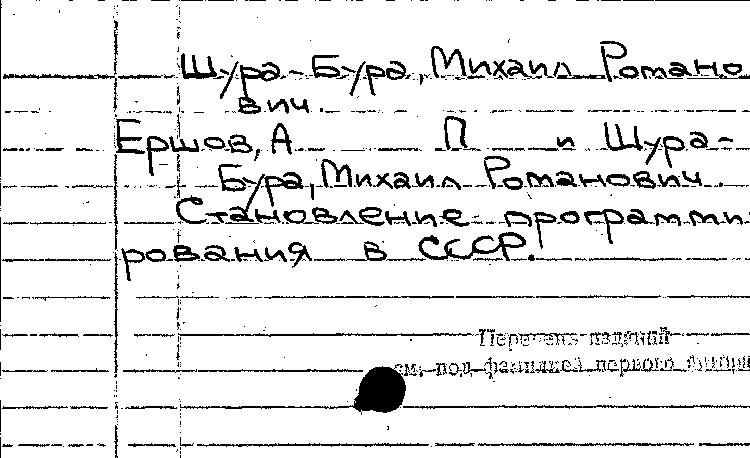 Шура-Бура, Михаил Романо
вич.
Ершов, А П и Шура-
Бура, Михаил Романович.
Становление программи
рования в СССР.
Перечень изданий
см. под фамилией первого автора